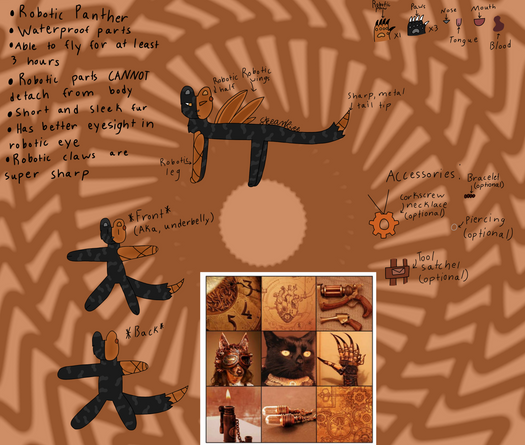 • Robotic Panther
• Waterproof parts
• Able to fly for at least
3 hours
• Robotic parts CANNOT
detach from body
• Short and sleek fur
• Has better eyesight in
robotic eye
• Robotic claws are
super sharp
Robotic
half
Robotic
wings
Sharp, metal
tail tip
Robotic
leg
*Front*
(AKA, underbelly)
*Back*
Robotic
x1
Paws
x3
Nose
Mouth
Tongue
Blood
Accessories
Bracelet
(optional)
necklace
(optional)
Piercing
(optional)
Tool
satchel
(optional)